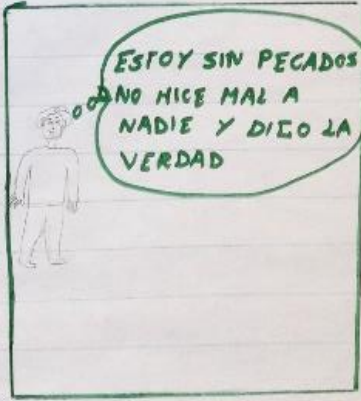 ESTOY SIN PECADOS
NO HICE MAL A
NADIE Y DIGO LA
VERDAD